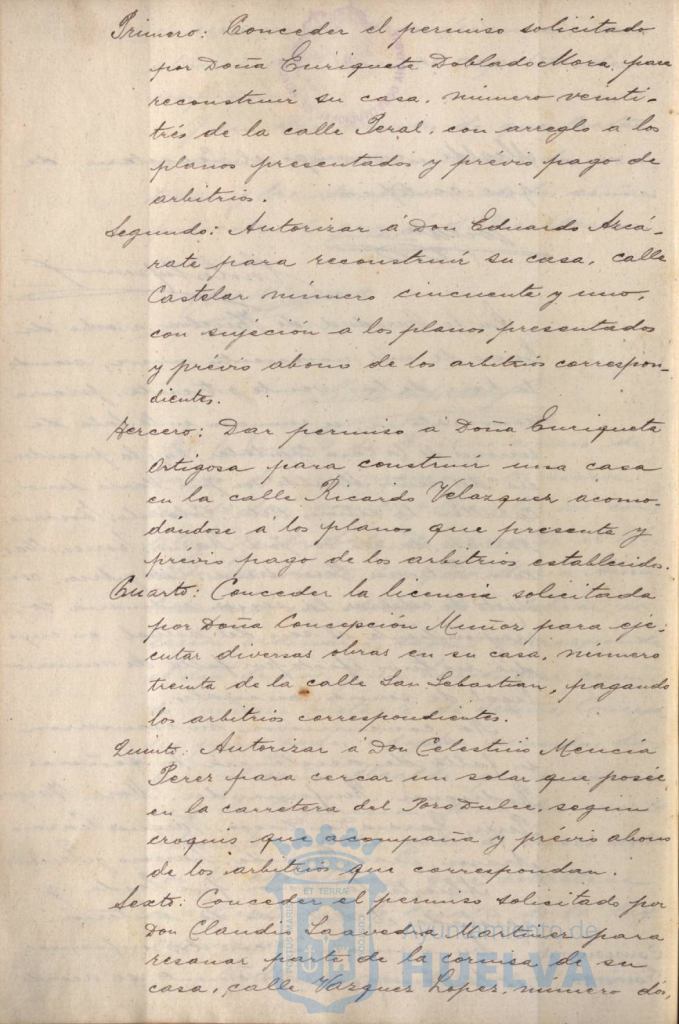 Primero: Conceder el permiso solicitado
por Doña Enriqueta Doblado Mora, para
reconstruir su casa, número veinti-
trés de la calle Peral, con arreglo á los
planos presentados y prévio pago de
arbitrios.
Segundo: Autorizar á Don Eduardo Azcá-
rate para reconstruir su casa, calle
Castelar número cincuenta y uno,
con sujeción á los planos presentados
y prévio abono de los arbitrios correspon-
dientes.
Tercero: Dar permiso á Doña Enriqueta
Ortigosa para construir una casa
en la calle Ricardo Velazquez acomo-
dándose á los planos que presenta y
prévio pago de los arbitrios establecidos.
Cuarto: Conceder la licencia solicitada
por Doña Concepción Muñoz para eje-
cutar diversas obras en su casa, número
treinta de la calle San Sebastian, pagando
los arbitrios correspondientes.
Quinto: Autorizar á Don Celestino Mencía
Perez para cercar un solar que posée
en la carretera del Pozo Dulce, segun
croquis que acompaña y prévio abono
de los arbitrios que correspondan.
Sexto: Conceder el permiso solicitado por
Don Claudio Saavedra Martinez para
resanar parte de la cornisa de su
casa, calle Vazquez Lopez, número dos,
Ayuntamiento de
HUELVA